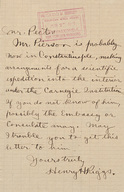 Mr. Pierson is probably
now in Constantinople, making
arrangements for a scientific
expedition into the interior
under the Carnegie Institution
If you do not know of him,
possibly the Embassy or
Consulate may. May
I trouble you to get this
letter to him
Yours truly,
Henry H. Riggs.